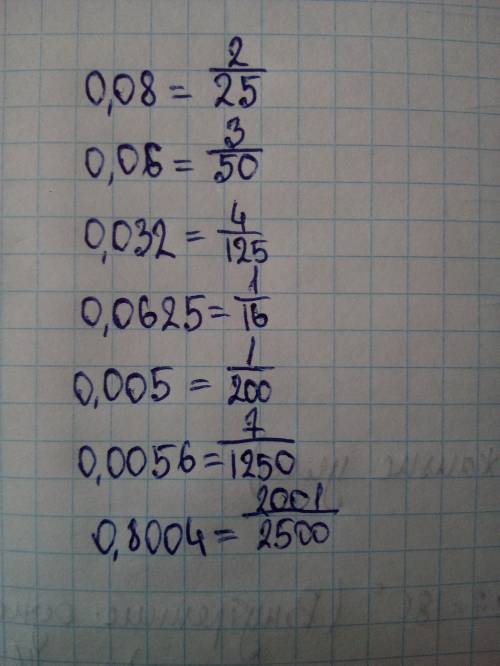 0,08 = 2/25
0,06 = 3/50
0,032 = 4/125
0,0625 = 1/16
0,005 = 1/200
0,0056 = 7/1250
0,8004 = 2001/2500